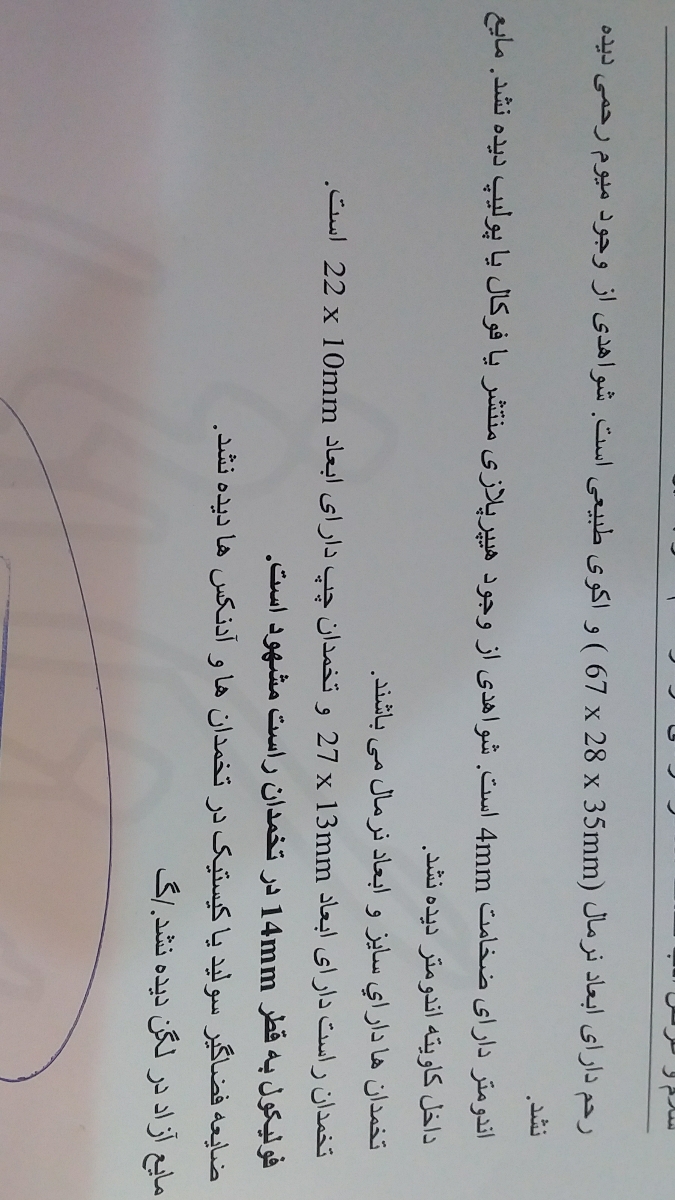 رحم دارای ابعاد نرمال (67 x 28 x 35mm ) و اکوی طبیعی است. شواهدی از وجود میوم رحمی دیده
نشد.
اندومتر دارای ضخامت 4mm است. شواهدی از وجود هیپرپلازی منتشر یا فوکال یا پولیپ دیده نشد. مایع
داخل کاویته اندومتر دیده نشد.
تخمدان ها داراي سایز و ابعاد نرمال می باشند.
تخمدان راست دارای ابعاد 27 x 13mm و تخمدان چپ دارای ابعاد 22 x 10mm است.
فولیکول به قطر 14mm در تخمدان راست مشهود است.
ضایعه فضاگیر سولید یا کیستیک در تخمدان ها و آدنکس ها دیده نشد.
مایع آزاد در لگن دیده نشد./گ